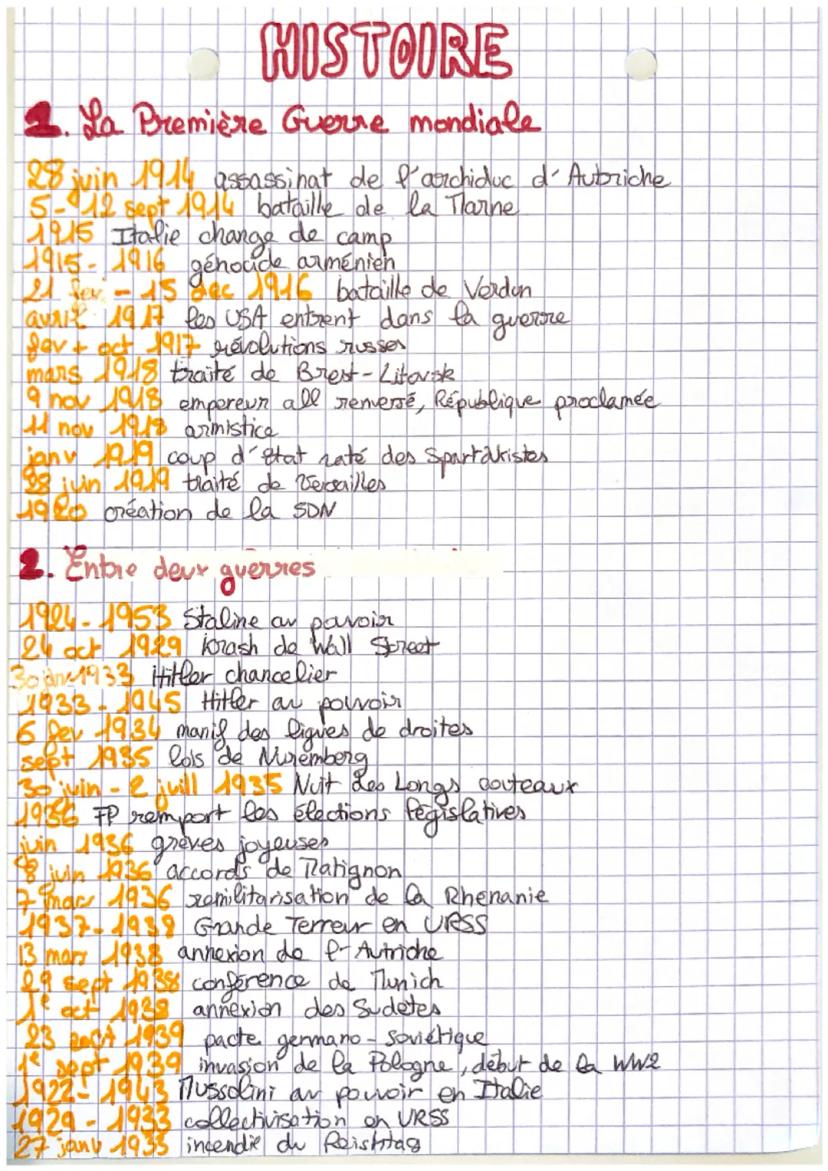 HISTOIRE
1. La Première Guerre mondiale
28 juin 1914 assassinat de l'archiduc d'Autriche
5-12 sept 1914 bataille de la Marne
1915 Italie change de camp
1915-1916 génocide arménien
21 fev - 15 dec 1916 bataille de Verdun
avril 1917 les USA entrent dans la guerre
fev + oct 1917 révolutions russes
mars 1918 traité de Brest-Litovsk
9 nov 1918 empereur all renversé, République proclamée
11 nov 1918 armistice
janv 1919 coup d'état raté des Spartakistes
28 juin 1919 traité de Versailles
1920 création de la SDN
2. Entre deux guerres
1924-1953 Staline au pouvoir
24 oct 1929 krash de Wall Street
30 janv 1933 Hitler chancelier
1933-1945 Hitler au pouvoir
6 fev 1934 manif des ligues de droites
sept 1935 lois de Nuremberg
30 juin - 2 juill 1935 Nuit des Longs couteaux
1936 FP remport les élections législatives
juin 1936 grèves joyeuses
8 juin 1936 accords de Matignon
7 mars 1936 remilitarisation de la Rhénanie
1937-1938 Grande Terreur en URSS
13 mars 1938 annexion de l'Autriche
29 sept 1938 conférence de Munich
1e oct 1938 annexion des Sudètes
23 aout 1939 pacte germano-soviétique
1e sept 1939 invasion de la Pologne, début de la WW2
1922-1943 Mussolini au pouvoir en Italie
1929-1933 collectivisation en URSS
27 janv 1933 incendie du Reishtag